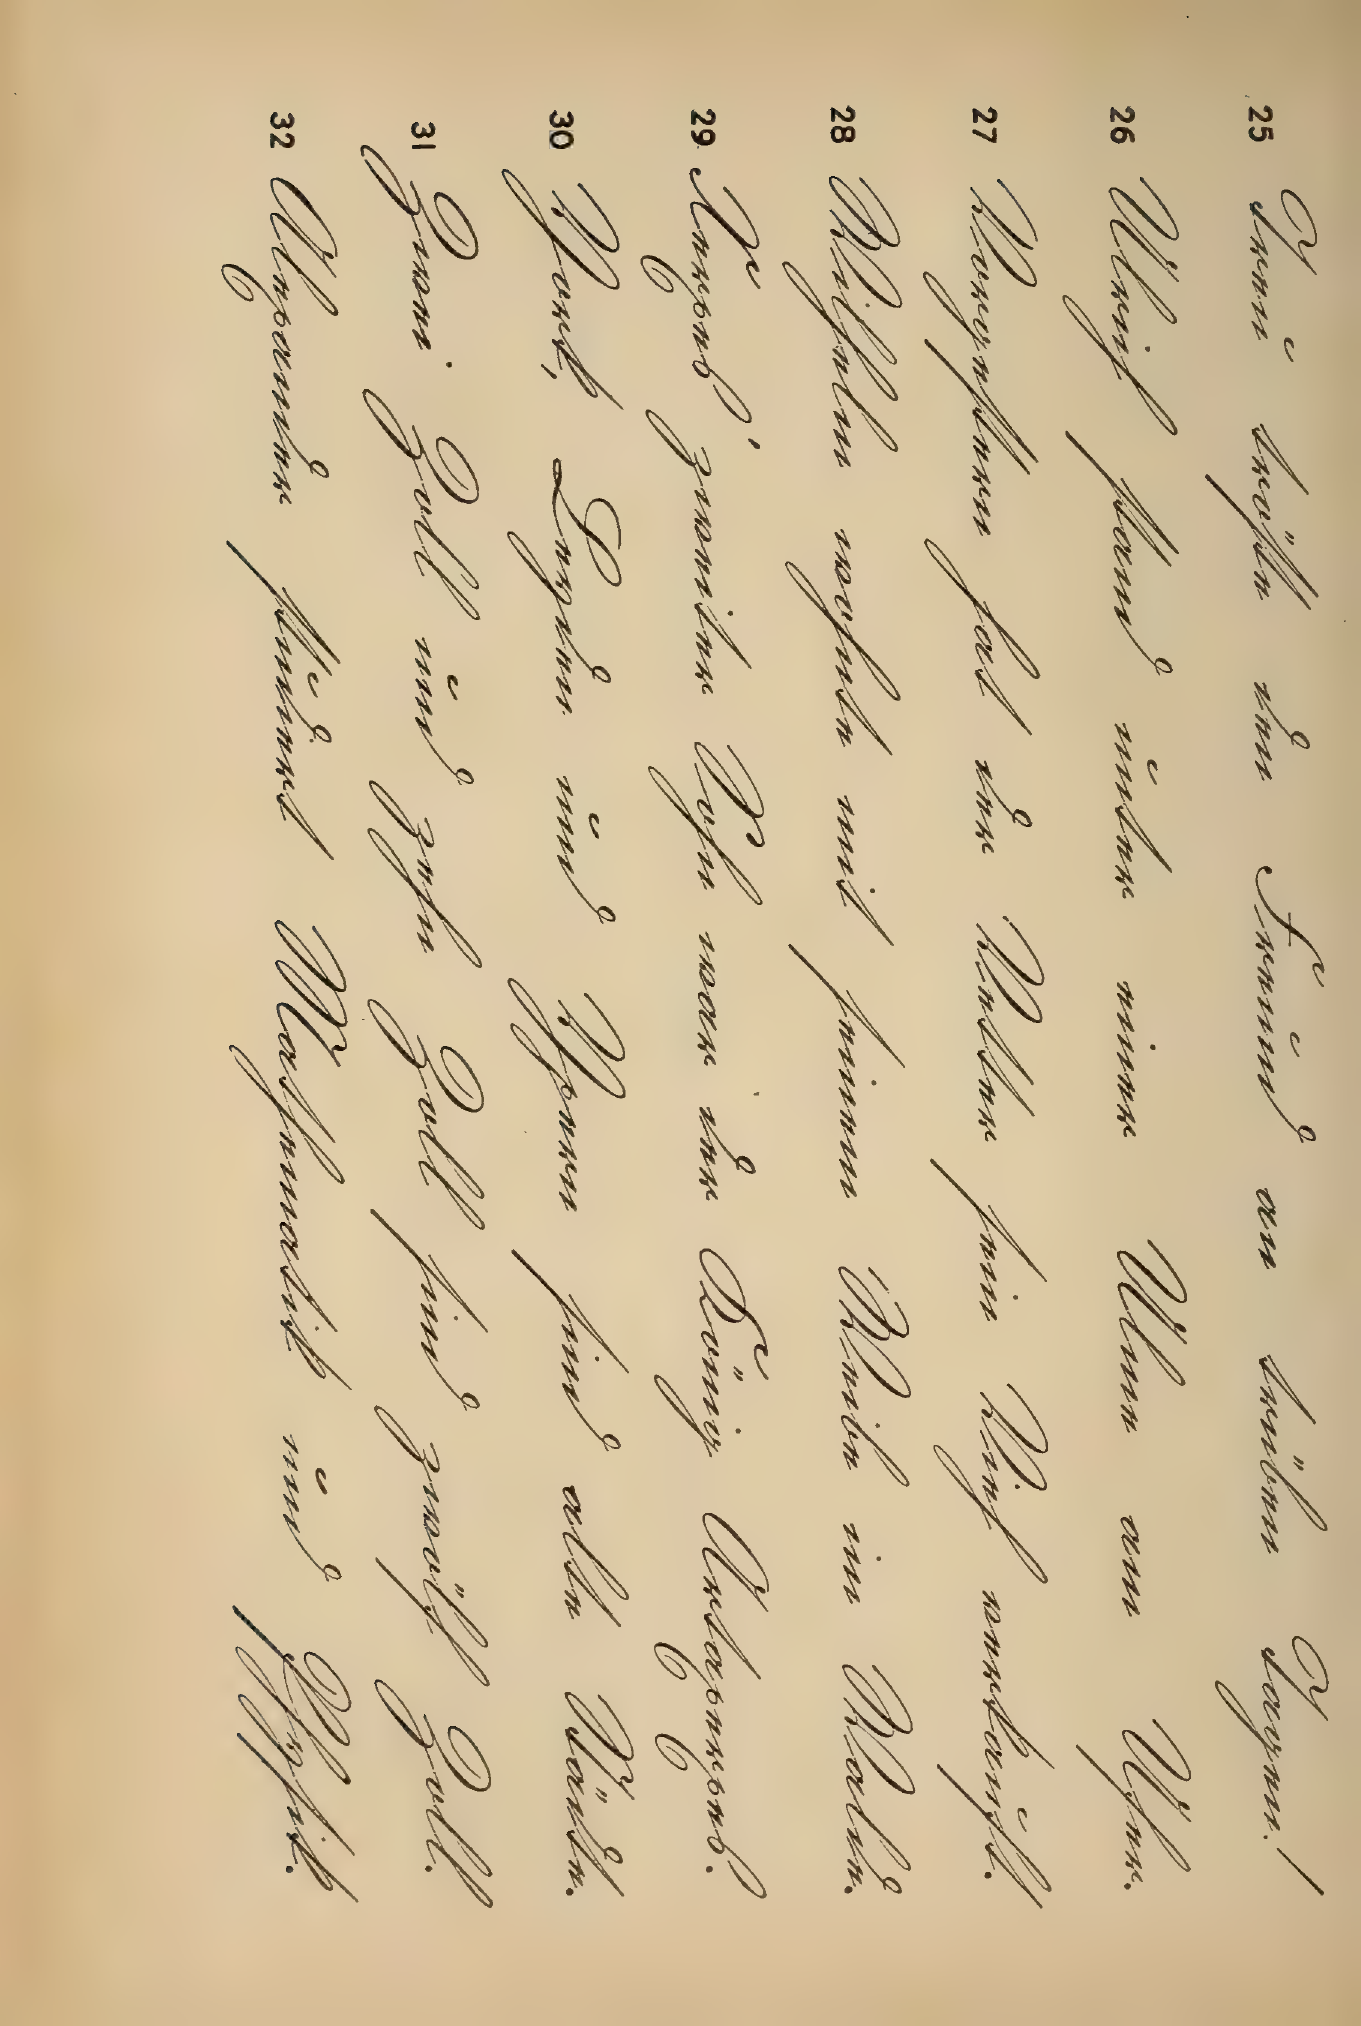 25 Treu tröste den Freund an trüben Tagen!
26 Ulrich stand unter einer Ulme am Ufer.
27 Vorgestern hat der Vetter sein Vieh verkauft.
28 Wilhelm wohnte mit seinem Weibe im Walde.
29 Xerxes' zweiter Sohn war der König Artaxerxes.
30 York, Leyden und Ypern sind alte Städte.
31 Zwei Zoll und zehn Zoll sind zwölf Zoll.
32 Alexander studiert Mathematik und Physik.